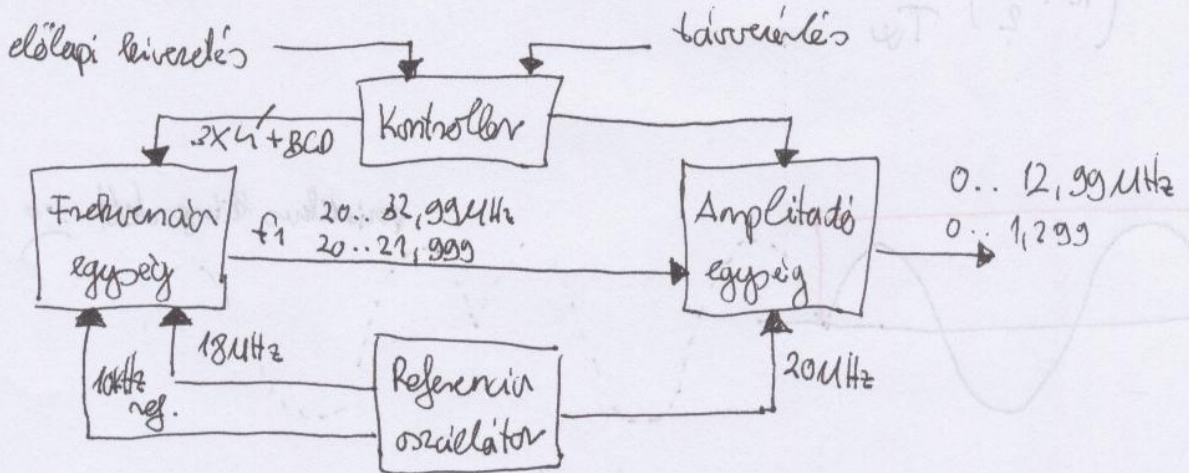 előlapi kivezetés
távvezérlés
Kontroller
3x4+BCD
Frekvencia
egység
f1
20.. 32,99MHz
20.. 21,999
Amplitudó
egység
0.. 12,99MHz
0.. 1,299
18MHz
10kHz
ref.
Referencia
oszcillátor
20MHz